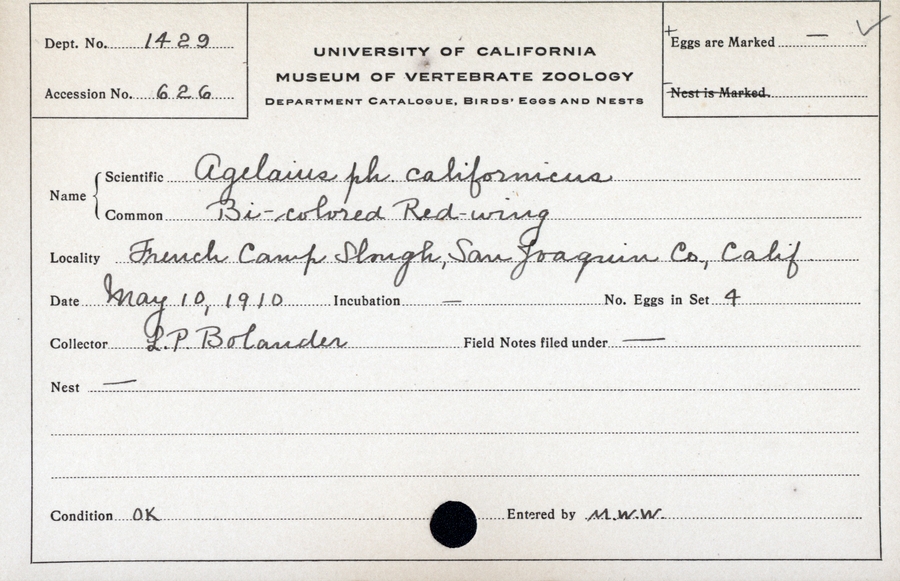 Dept. No. 1429
Accession No. 626
UNIVERSITY OF CALIFORNIA
MUSEUM OF VERTEBRATE ZOOLOGY
DEPARTMENT CATALOGUE, BIRDS' EGGS AND NESTS
Eggs are Marked —
Nest is Marked.
Name
Scientific Agelaius ph. californicus
Common Bi-colored Red-wing
Locality French Camp Slough, San Joaquin Co., Calif
Date May 10, 1910 Incubation — No. Eggs in Set 4
Collector L.P. Bolander Field Notes filed under —
Nest —
Condition OK Entered by M.W.W.